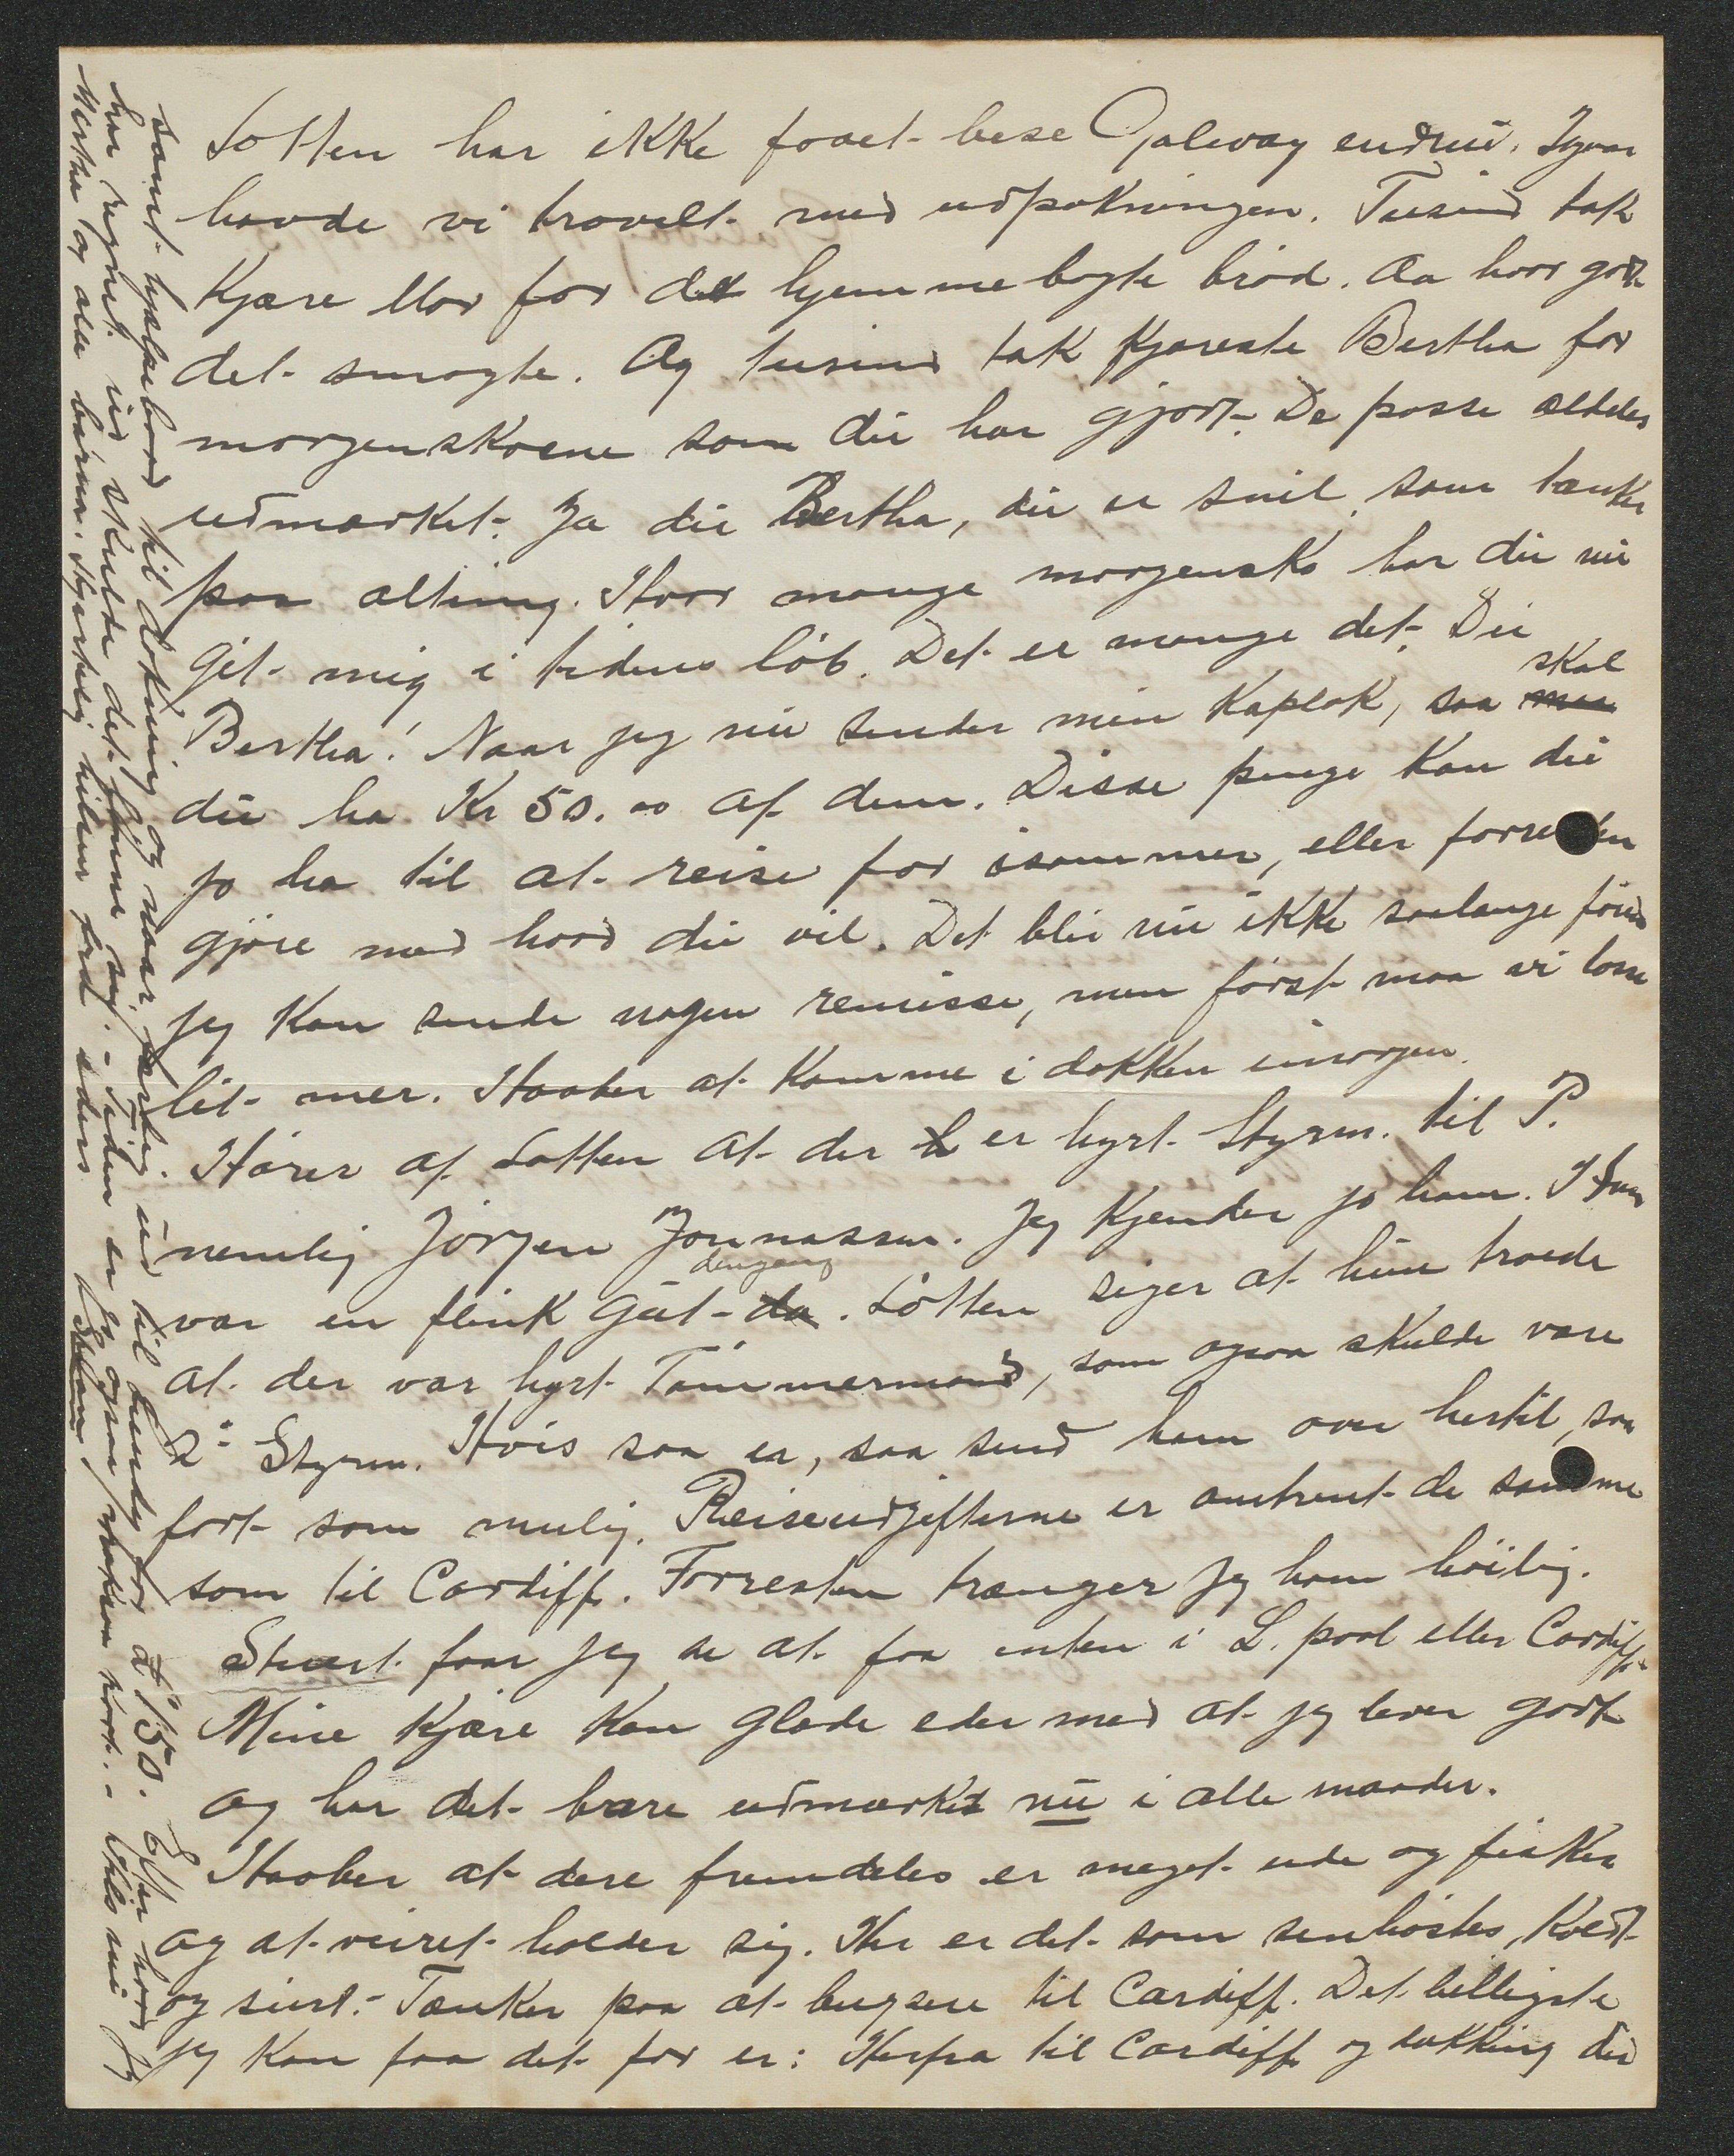 Lotten har ikke faaet bese Galway endnu. Igaar
havde vi travelt med udpakningen. Tusind tak
Kjære Mor for det hjemmebagte brød. Aa hvor godt
det smagte. Og tusind tak Kjæreste Bertha for
morgenskoene som du har gjort. De passe aldeles
udmærket. Ja du Bertha, du er snil, som tænker
paa alting. Hvor mange morgensko har du nu
git mig i tidens løb. Det er mange det. Du
skal
Bertha! Naar jeg nu sender min Kaplak, saa
du ha Kr 50.00 af dem. Disse penge kan du
jo ha til at reise for isommer, eller forresten
gjøre med hvad du vil. Det blir nu ikke saalænge førend
jeg kan sende nogen remisse, men først maa vi losse
lit mer. Haaber at komme i dokken imorgen.
Hører af Lotten at der er hyrt Styrm. til P.
nemlig Jørgen Jonnassen. Jeg kjender jo ham. Han
dengang
var en flink gut. Lotten siger at hun troede
at der var hyrt Tømmermand, som ogsaa skulde være
2. Styrm. Hvis saa er, saa send ham over hertil, saa
fort som mulig. Reiseudgifterne er omtrent de samme
som til Cardiff. Forresten trænger jeg ham høilig.
Stuert faar jeg se at faa enten i L.pool eller Cardiff.
Mine Kjære kan glæde eder med at jeg lever godt
og har det bare udmærket nu i alle maader.
Haaber at dere fremdeles er meget ude og fisker
og at veiret holder sig. Her er det som senhøstes, Koldt
og surt. Tænker paa at bugsere til Cardiff. Det billigste
jeg kan faa det for er: Herfra til Cardiff og dokking der
samt hjælpebaad til dokning og naar færdig ud til Lundy for £150. Efter hvad jeg
har regnet ud skulde det lønne sig. - Tiden er jo ogsaa knap. - Hils nu
Mertha og alle børna. Hjertelig hilsen fra eders